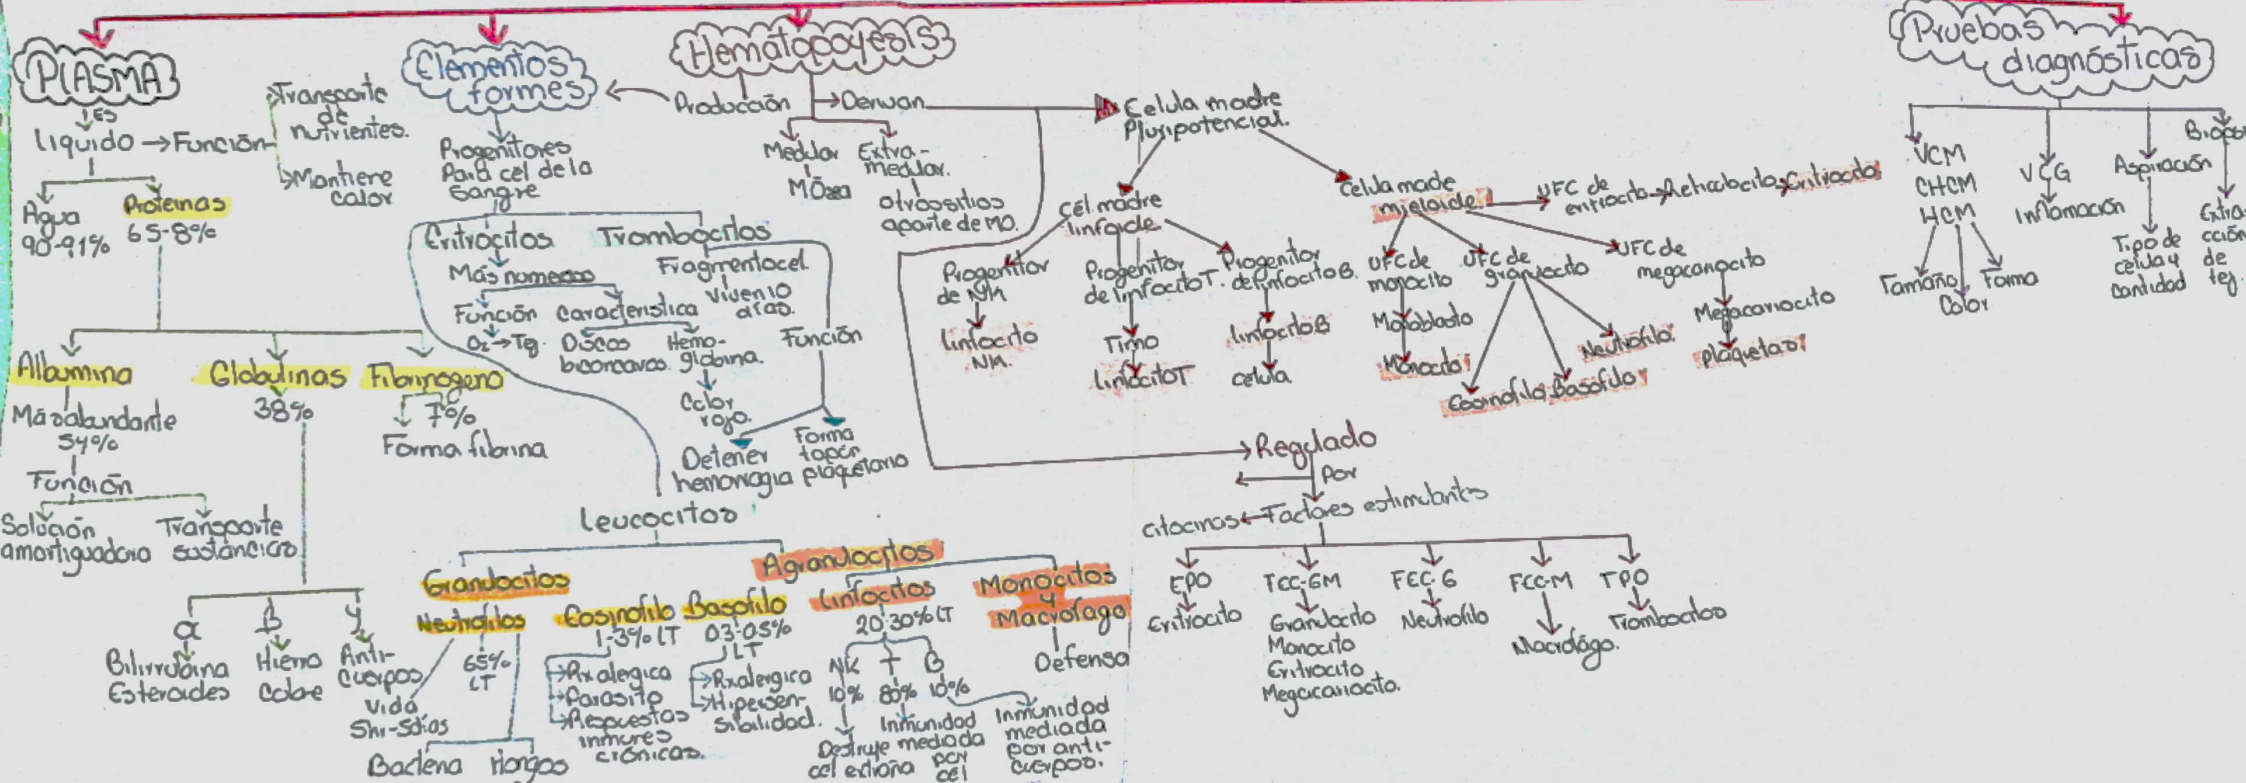 PLASMA
ES
líquido → Función
Transporte
de
nutrientes.
Mantiene
calor
Agua
90-91%
Proteinas
6.5-8%
Albumina
Más abundante
54%
Función
Solución
amortiguadora
Transporte
sustancias
Globulinas
38%
α
Bilirrubina
Esteroides
β
Hierro
Cobre
γ
Anti-
cuerpos
Fibrinogeno
7%
Forma fibrina
Elementos
formes
Progenitores
Para cel de la
sangre
Eritrocitos
Más numeroso
Función
O2→Tej.
Caracteristica
Discos
biconcavos.
Hemo-
globina.
Color
rojo.
Trombocitos
Fragmento cel.
viven 10
días.
Función
Detener
hemorragia
Forma
tapón
plaquetario
Leucocitos
Granulocitos
Neutrofilos
65%
LT
Vida
5hr-5días
Bacteria
Hongos
Eosinofilo
1-3% LT
Rx alergica
Parasito
Respuestas
inmunes
crónicas.
Basofilo
03-05%
LT
Rx alergica
Hipersen-
sibilidad.
Agranulocitos
Linfocitos
20-30% LT
NK
10%
Destruye
cel extraña
T
80%
Inmunidad
mediada
por
cel
B
10%
Inmunidad
mediada
por anti-
cuerpos.
Monocitos
y
Macrofago
Defensa
Hematopoyesis
Producción
Derivan
Medular
MÓsea
Extra-
medular.
otros sitios
aparte de MO.
Celula madre
Pluripotencial.
Cel. madre
linfoide
Progenitor
de NK
linfocito
NK.
Progenitor
de linfocito T.
Timo
linfocito T
Progenitor
de linfocito B.
linfocito B
celula
Celula made
mieloide
UFC de
eritrocito→Reticulocito→Eritrocito
UFC de
monocito
Monoblasto
Monocito
UFC de
granulocito
Eosinofilo
Basofilo
Neutrofilo
UFC de
megacariocito
Megacariocito
plaquetas
Regulado
por
Factores estimulantes
citocinas
EPO
Eritrocito
FCC-GM
Granulocito
Monocito
Eritrocito
Megacariocito.
FEC-G
Neutrofilo
FCC-M
Macrófago.
TPO
Trombocitos
Pruebas
diagnósticas
VCM
CHCM
HCM
Tamaño
Color
Forma
VCG
Inflamación
Aspiración
Tipo de
celula y
cantidad
Extra-
cción
de
tej.